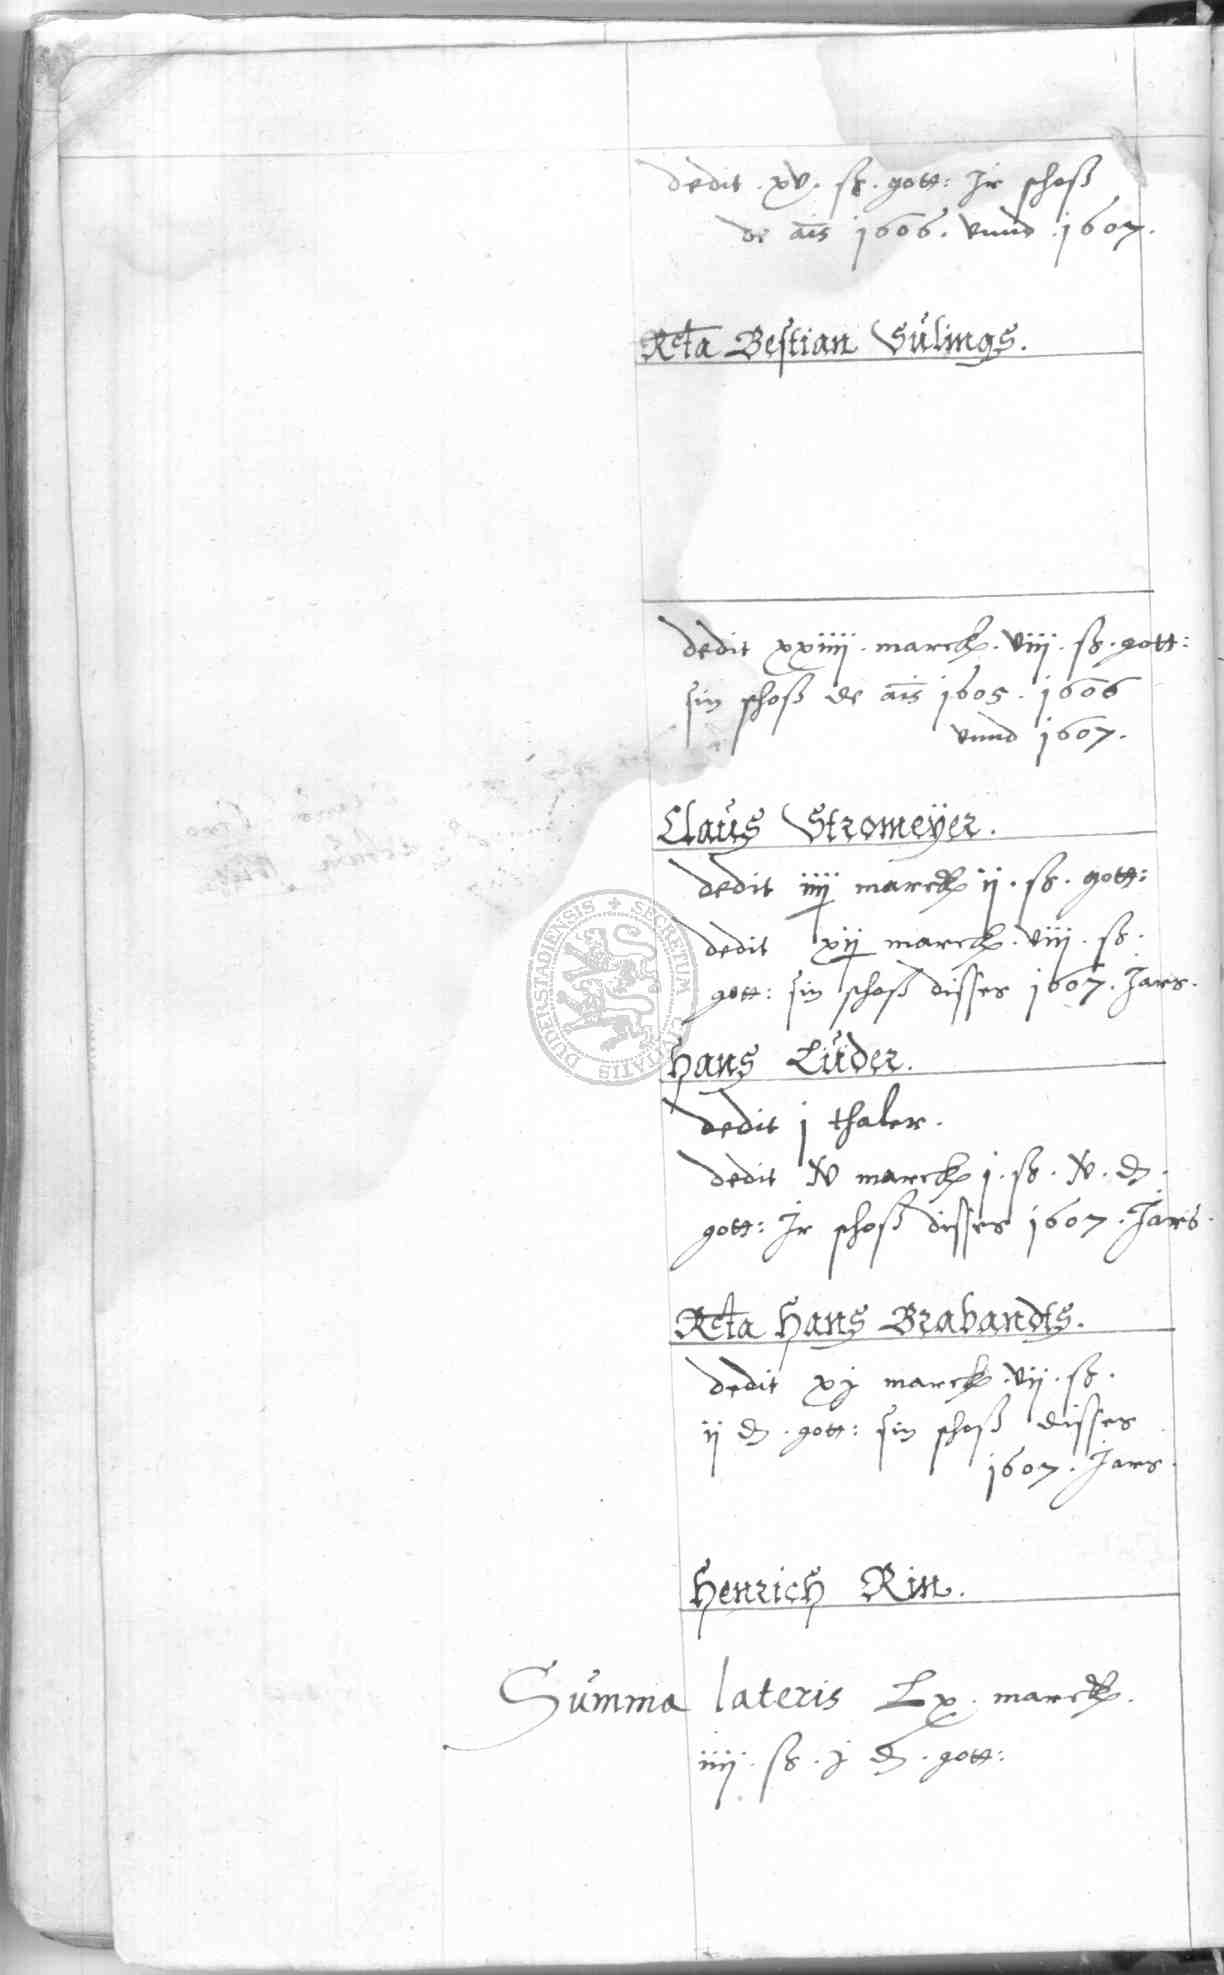 dedit . xv . ß . gott: Jr schoß
de a͞is 1606 . vnnd . 1607 .
Rcta Bestian Sulings .
dedit xxiiij . marck . viij . ß . gott:
sin schoß de a͞is 1605 . 1606
vnnd 1607 .
Claus Stromeyer .
dedit iiij marck ij . ß . gott:
dedit xij marck . viij . ß .
gott: sin schoß disses 1607 . Jars .
Hans Lüder .
dedit j thaler .
dedit marck j . ß . . ₰ .
gott: Jr schoß disses 1607 . Jars .
Rcta Hans Brabandts .
dedit xj marck . vij . ß .
ij ₰ . gott: sin schoß disses
1607 . Jars .
Henrich Rin .
Summa lateris Lx . marck .
iiij . ß . j ₰ . gott:
SECRETUM CIVITATIS DUDERSTADIENSIS